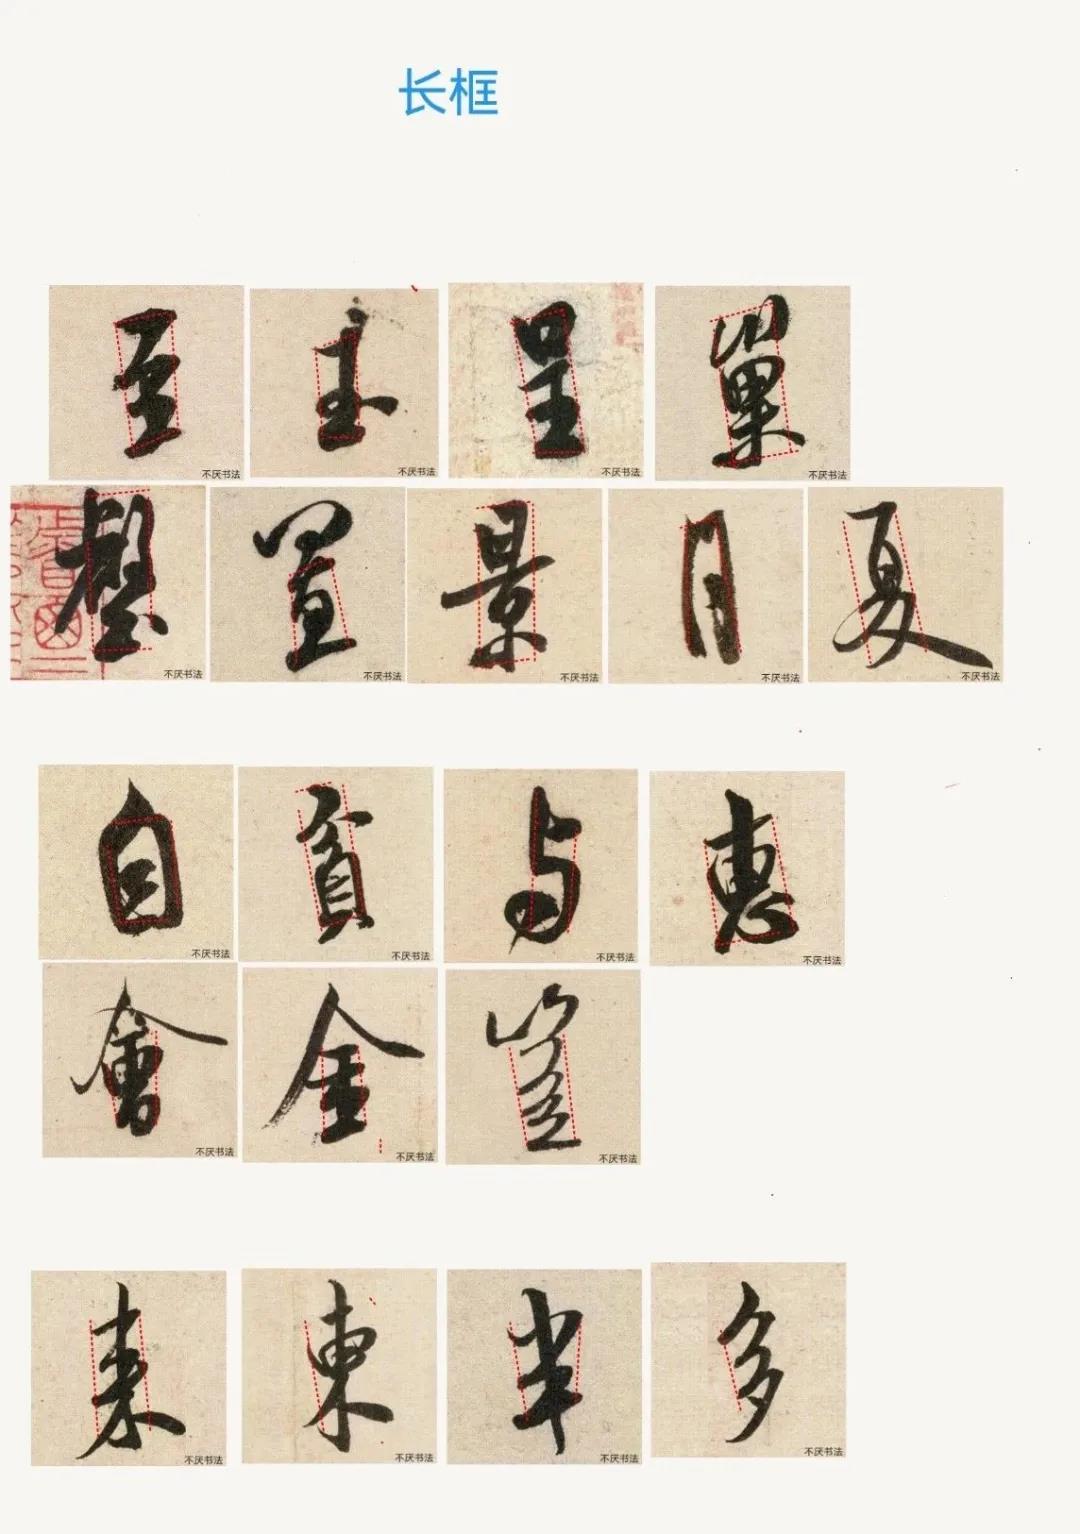 长框
至 主 呈 巢
不厌书法 不厌书法 不厌书法 不厌书法
置 景 月 夏
不厌书法 不厌书法 不厌书法 不厌书法 不厌书法
自 貧 与 惠
不厌书法 不厌书法 不厌书法 不厌书法
會 金 豈
不厌书法 不厌书法 不厌书法
来 東 半 多
不厌书法 不厌书法 不厌书法 不厌书法